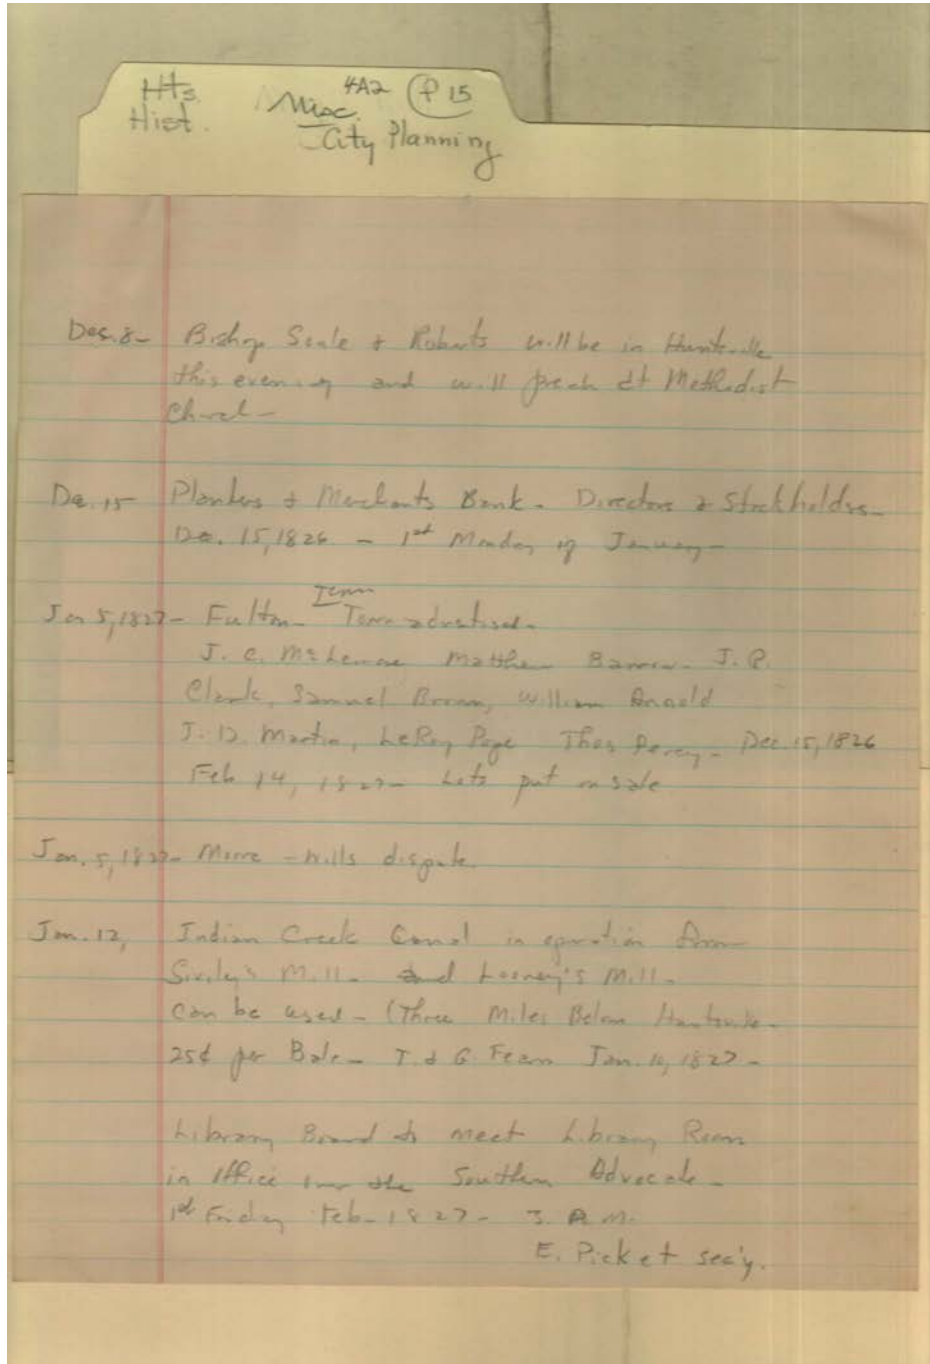 Hts. Hist.
4A2 P 15
Misc. City Planning
Dec. 8- Bishop Soule & Roberts will be in Huntsville
this evening and will preach at Methodist
Church-
Dec. 15 Planters & Merchants Bank- Directors & Stockholders-
Dec. 15, 1826 - 1st Monday of January-
Jan 5, 1827- Fulton- Tenn advertised-
J. C. Matthew Barrow- J. P.
Clark, Samuel Brown, William Arnold
J. D. Martin, LeRoy Pope Thos Percy- Dec. 15, 1826
Feb 14, 1827- Lots put on sale
Jan. 5, 1827- Moore - Mills dispute
Jan. 12, Indian Creek Canal in operation from
Sively's Mill- and Looney's Mill-
can be used - (Three Miles Below Huntsville-
25¢ per Bale- T. & G Fearn Jan. 11, 1827-
Library Board to meet Library Room
in office over the Southern Advocate-
1st Friday Feb- 1827- 3. A.M.
E. Picket sec'y.